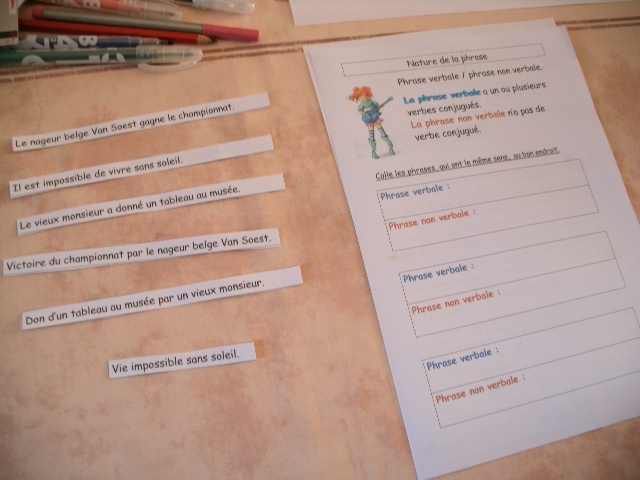 Le nageur belge Van Soest gagne le championnat.
Il est impossible de vivre sans soleil.
Le vieux monsieur a donné un tableau au musée.
Victoire du championnat par le nageur belge Van Soest.
Don d'un tableau au musée par un vieux monsieur.
Vie impossible sans soleil.
Nature de la phrase
Phrase verbale / phrase non verbale.
La phrase verbale a un ou plusieurs
verbes conjugués.
La phrase non verbale n'a pas de
verbe conjugué.
Colle les phrases, qui ont le même sens, au bon endroit.
Phrase verbale :
Phrase non verbale :
Phrase verbale :
Phrase non verbale :
Phrase verbale :
Phrase non verbale :